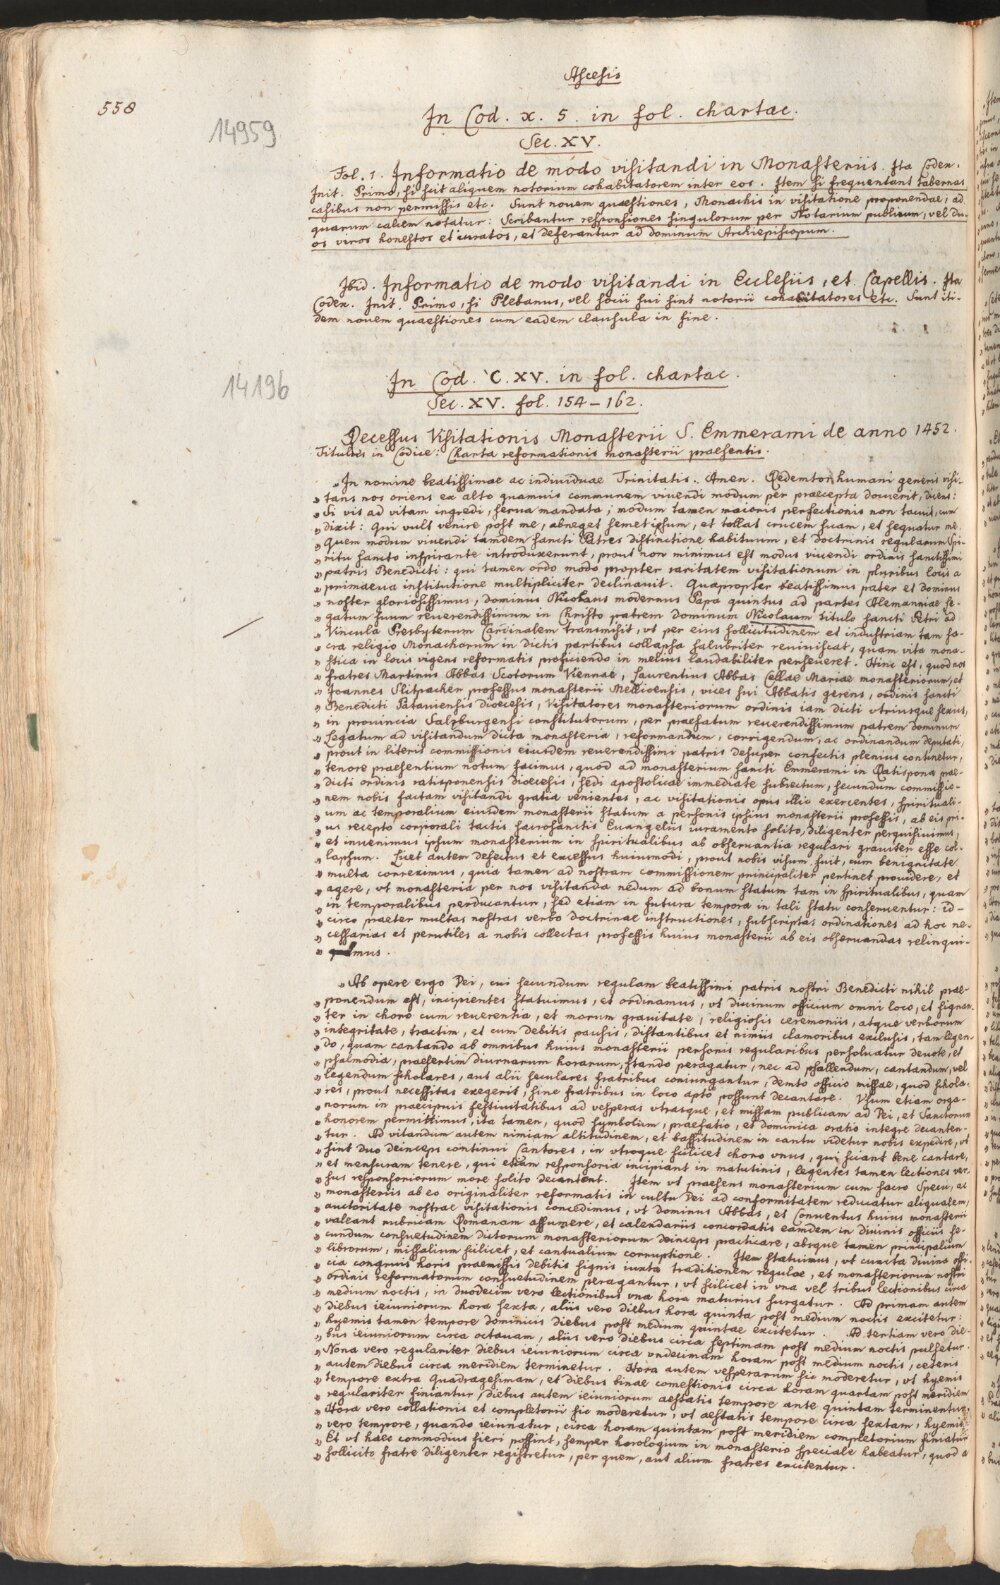 Ascesis
558
In Cod. x. 5. in fol. chartac.
14959
Sec. XV.
Fol. 1. Informatio de modo visitandi in Monasteriis. Ita Codex.
Init. Primo, si scit aliquem notorium cohabitatorem inter eos. Item si frequentant tabernas
casibus non permissis etc. Sunt novem quaestiones, Monachis in visitatione proponendae, ad
quarum calcem notatur: Scribantur responsiones singulorum per Notarium publicum, vel du-
os viros honestos et iuratos, et deferantur ad dominum Archiepiscopum.
Ibid. Informatio de modo visitandi in Ecclesiis, et Capellis. Ita
Codex. Init. Primo, si Plebanus, vel socii sui sint notorii cohabitatores etc. Sunt iti-
dem novem quaestiones cum eadem clausula in fine.
14196
In Cod. C. XV. in fol. chartac.
Sec. XV. fol. 154–162.
Recessus Visitationis Monasterii S. Emmerami de anno 1452.
Titulus in Codice: Charta reformationis monasterii praesentis.
„In nomine beatissimae ac individuae Trinitatis. Amen. Redemtor humani generis visi-
„tans nos oriens ex alto quamvis communem vivendi modum per praecepta docuerit, dicens:
„Si vis ad vitam ingredi, serva mandata; modum tamen maioris perfectionis non tacuit, cum
„dixit: Qui vult venire post me, abneget semetipsum, et tollat crucem suam, et sequatur me.
„Quem modum vivendi tamdem sancti Patres distinctione habituum, et doctrinis regularum Spi-
„ritu sancto inspirante introduxerunt, prout non minimus est modus vivendi ordinis sanctissimi
„patris Benedicti: qui tamen ordo modo propter raritatem visitationum in pluribus locis a
„primaeva institutione multipliciter declinavit. Quapropter beatissimus pater et dominus
„noster gloriosissimus, dominus Nicolaus modernus Papa quintus ad partes Alemanniae le-
„gatum suum reverendissimum in Christo patrem dominum Nicolaum titulo sancti Petri ad
„Vincula Presbyterum Cardinalem transmisit, vt per eius sollicitudinem et industriam tam sa-
„cra religio Monachorum in dictis partibus collapsa salubriter reviviscat, quam vita mona-
„stica in locis vigens reformatis proficiscendo in melius laudabiliter perseveret. Hinc est, quod nos
„fratres Martinus Abbas Scotorum Viennae, Laurentius Abbas Cellae Mariae monasteriorum, et
„Joannes Slitpacher professus monasterii Mellicensis, vices sui Abbatis gerens, ordinis sancti
„Benedicti Pataviensis dioecesis, Visitatores monasteriorum ordinis iam dicti vtriusque sexus,
„in provincia Salzburgensi constitutorum, per praefatum reverendissimum patrem dominum
„Legatum ad visitandum dicta monasteria, reformandum, corrigendum, ac ordinandum deputati,
„prout in literis commissionis eiusdem reverendissimi patris desuper confectis plenius continetur,
„tenore praesentium notum facimus, quod ad monasterium sancti Emmerami in Ratispona prae-
„dicti ordinis ratisponensis dioecesis, sedi apostolicae immediate subiectum, secundum commissio-
„nem nobis factam visitandi gratia venientes, ac visitationis opus illic exercentes, spirituali-
„um ac temporalium eiusdem monasterii statum a personis ipsius monasterii professis, ab eis pri-
„us recepto corporali tactis sacrosanctis Evangeliis iuramento solito, diligenter perquisivimus,
„et invenimus ipsum monasterium in spiritualibus ab observantia regulari graviter esse col-
„lapsum. Licet autem defectus et excessus huiusmodi, prout nobis visum fuit, cum benignitate
„multa correximus, quia tamen ad nostram commissionem principaliter pertinet providere, et
„agere, vt monasteria per nos visitanda nedum ad bonum statum tam in spiritualibus, quam
„in temporalibus perducantur, sed etiam in futura tempora in tali statu conserventur: id-
„circo praeter multas nostras verbo doctrinae instructiones, subscriptas ordinationes ad hoc ne-
„cessarias et perutiles a nobis collectas professis huius monasterii ab eis observandas relinqui-
„mus.
„Ab opere ergo Dei, cui secundum regulam beatissimi patris nostri Benedicti nihil prae-
„ponendum est, incipientes statuimus, et ordinamus, vt divinum officium omni loco, et signan-
„ter in choro cum reverentia, et morum gravitate, religiosis ceremoniis, atque verborum
„integritate, tractim, et cum debitis pausis, distantibus et nimiis clamoribus exclusis, tam legen-
„do, quam cantando ab omnibus huius monasterii personis regularibus persolvatur devote, et
„psalmodia, praesertim diurnarum horarum, stando peragatur, nec ad psallendum, cantandum, vel
„legendum scholares, aut alii seculares fratribus coniungantur, demto officio missae, quod schola-
„res, prout necessitas exegerit, sine fratribus in loco apto possunt decantare. Vsum etiam orga-
„norum in praecipuis festivitatibus ad vesperas vtrasque, et missam publicam ad Dei, et Sanctorum
„honorem permittimus, ita tamen, quod symbolum, praefatio, et dominica oratio integre decanten-
„tur. Ad vitandum autem nimiam altitudinem, et bassitudinem in cantu videtur nobis expedire, vt
„sint duo deinceps continui Cantores, in vtroque scilicet choro vnus, qui sciant bene cantare,
„et mensuram tenere, qui etiam responsoria incipiant in matutinis, legentes tamen lectiones ver-
„sus responsoriorum more solito decantent. Item vt praesens monasterium cum sacro Specu, et
„monasteriis ab eo originaliter reformatis in cultu Dei ad conformitatem reducatur aliqualem,
„auctoritate nostrae visitationis concedimus, vt dominus Abbas, et Conventus huius monasterii
„valeant rubricam Romanam assumere, et calendariis concordatis eamdem in divinis officiis se-
„cundum consuetudinem dictorum monasteriorum deinceps practicare, absque tamen principalium
„librorum, missalium scilicet, et cantualium corruptione. Item statuimus, vt cuncta divina offi-
„cia congruis horis praemissis debitis signis iuxta traditionem regulae, et monasteriorum nostri
„ordinis reformatorum consuetudinem peragantur, vt scilicet in vna vel tribus lectionibus circa
„medium noctis, in duodecim vero lectionibus vna hora maturius surgatur. Ad primam autem
„diebus ieiuniorum hora sexta, aliis vero diebus hora quinta post medium noctis excitetur:
„hyemis tamen tempore dominicis diebus post medium quintae excitetur. Ad tertiam vero die-
„bus ieiuniorum circa octavam, aliis vero diebus circa septimam post medium noctis pulsetur.
„Nona vero regulariter diebus ieiuniorum circa vndecimam horam post medium noctis, ceteris
„autem diebus circa meridiem terminetur. Hora autem vesperarum sic moderetur, vt hyemis
„tempore extra quadragesimam, et diebus binae comestionis circa horam quartam post meridiem
„regulariter finiantur, diebus autem ieiuniorum aestatis tempore ante quintam terminentur.
„Hora vero collationis et completorii sic moderetur, vt aestatis tempore circa sextam, hyemis
„vero tempore, quando ieiunatur, circa horam quintam post meridiem completorium finiatur.
„Et vt haec commodius fieri possint, semper horologium in monasterio speciale habeatur, quod a
„sollicito fratre diligenter registretur, per quem, aut alium fratres excitentur.